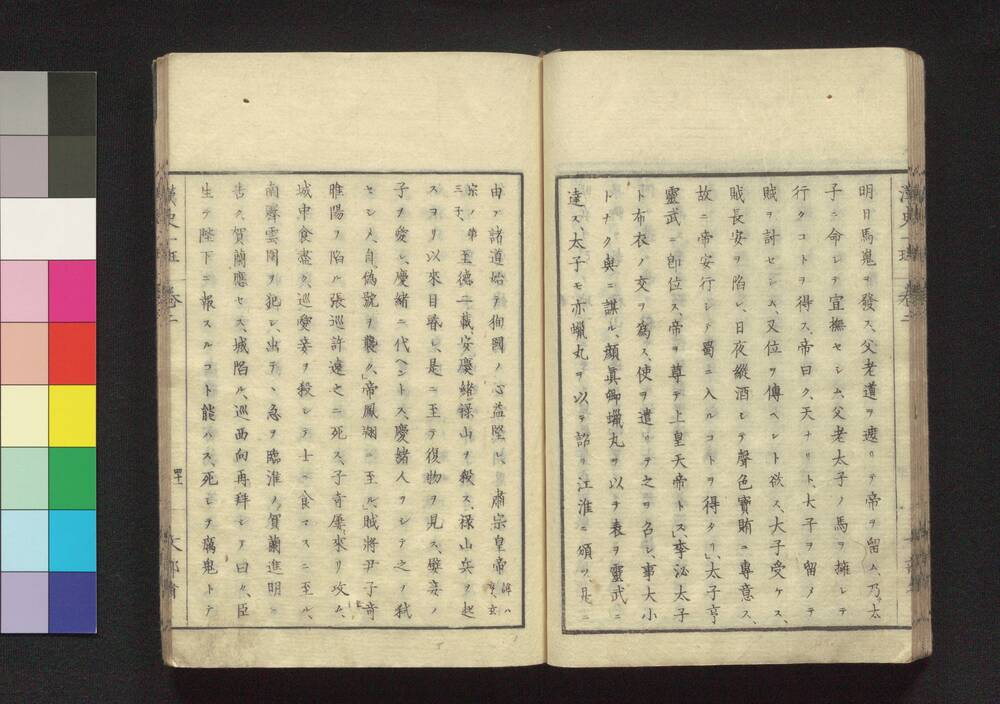 明日馬鬼ヲ發ス、父老道ヲ遮リテ帝ヲ留ム、乃太
子ニ命シテ宣撫セシム、父老太子ノ馬ヲ擁シテ
行クコトヲ得ス、帝曰ク、天ナリト、大子ヲ留メテ
賊ヲ討セシム、又位ヲ傳ヘント欲ス、大子受ケス、
賊長安ヲ陷レ、日夜縱酒シテ聲色寶賄ニ專意ス、
故ニ帝安行シテ蜀ニ入ルコトヲ得タリ、太子亨
靈武ニ卽位ス、帝ヲ尊テ上皇天帝トス、李泌太子
ト布衣ノ交ヲ爲ス、使ヲ遣リテ之ヲ召シ、事大小
トナク與ニ謀ル、顔眞卿蠟丸ヲ以テ表ヲ靈武ニ
達ス、太子モ亦蠟丸ヲ以テ詔リ江淮ニ頒ツ、是ニ
由テ諸道始テ徇國ノ心益堅シ、肅宗皇帝諱ハ亨、玄
宗ノ第三子、至德二載、安慶緖祿山ヲ殺ス、祿山兵ヲ起
スヨリ以來目昏シ、是ニ至テ復物ヲ見ス、嬖妾ノ
子ヲ愛シ、慶緖ニ代ヘントス、慶緖人ヲシテ之ヲ弑
セシメ、自僞號ヲ襲ク、帝鳳翔ニ至ル、賊將尹子奇
睢陽ヲ陷ル張巡許遠之ニ死ス、子奇屢來リ攻ム、
城中食盡ク、巡愛妾ヲ殺シテ士ニ食マスニ至ル、
南霽雲圍ヲ犯シ、出テヽ急ヲ臨淮ノ賀蘭進明ニ
吿ク、賀蘭應セス、城陷ル、巡西向再拜シテ曰ク、臣
生テ陛下ニ報スルコト能ハス、死シテ厲鬼トテ
漢史一班 卷二